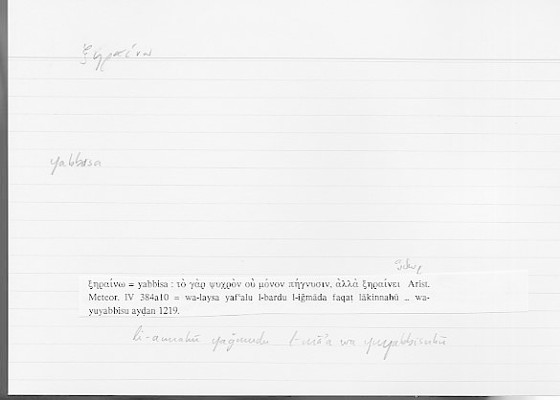 ξηραίνω
yabbisa
ξηραίνω = yabbisa : τὸ γὰρ ψυχρὸν οὐ μόνον πήγνυσιν, ἀλλὰ ξηραίνει Arist.
Meteor. IV 384a10 = wa-laysa yafʿalu l-bardu l-iǧmāda faqaṭ lākinnahū .. wa-
yuyabbisu ayḍan 1219.
li-annahū yaǧmudu l-māʾa wa yuyabbisuhū